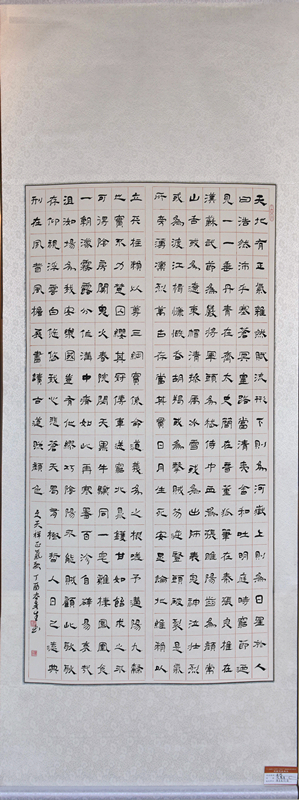 天地有正氣雜然賦流形下則為河嶽上則為日星於人
曰浩然沛乎塞蒼冥皇路當清夷含和吐明庭時窮節迺
見一一垂丹青在齊太史簡在晉董狐筆在秦張良椎在
漢蘇武節為嚴將軍頭為嵇侍中血為張睢陽齒為顏常
山舌或為遼東帽清操厲冰雪或為出師表鬼神泣壯烈
或為渡江楫慷慨吞胡羯或為擊賊笏逆豎頭破裂是氣
所旁薄凜烈萬古存當其貫日月生死安足論地維賴以
立天柱賴以尊三綱實係命道義為之根嗟予遘陽九隸
也實不力楚囚纓其冠傳車送窮北鼎鑊甘如飴求之不
可得陰房闃鬼火春院閟天黑牛驥同一皂雞棲鳳凰食
一朝濛霧露分作溝中瘠如此再寒暑百沴自辟易哀哉
沮洳場為我安樂國豈有他繆巧陰陽不能賊顧此耿耿
存仰視浮雲白悠悠我心悲蒼天曷有極哲人日已遠典
刑在夙昔風檐展書讀古道照顏色 文天祥正氣歌 丁酉